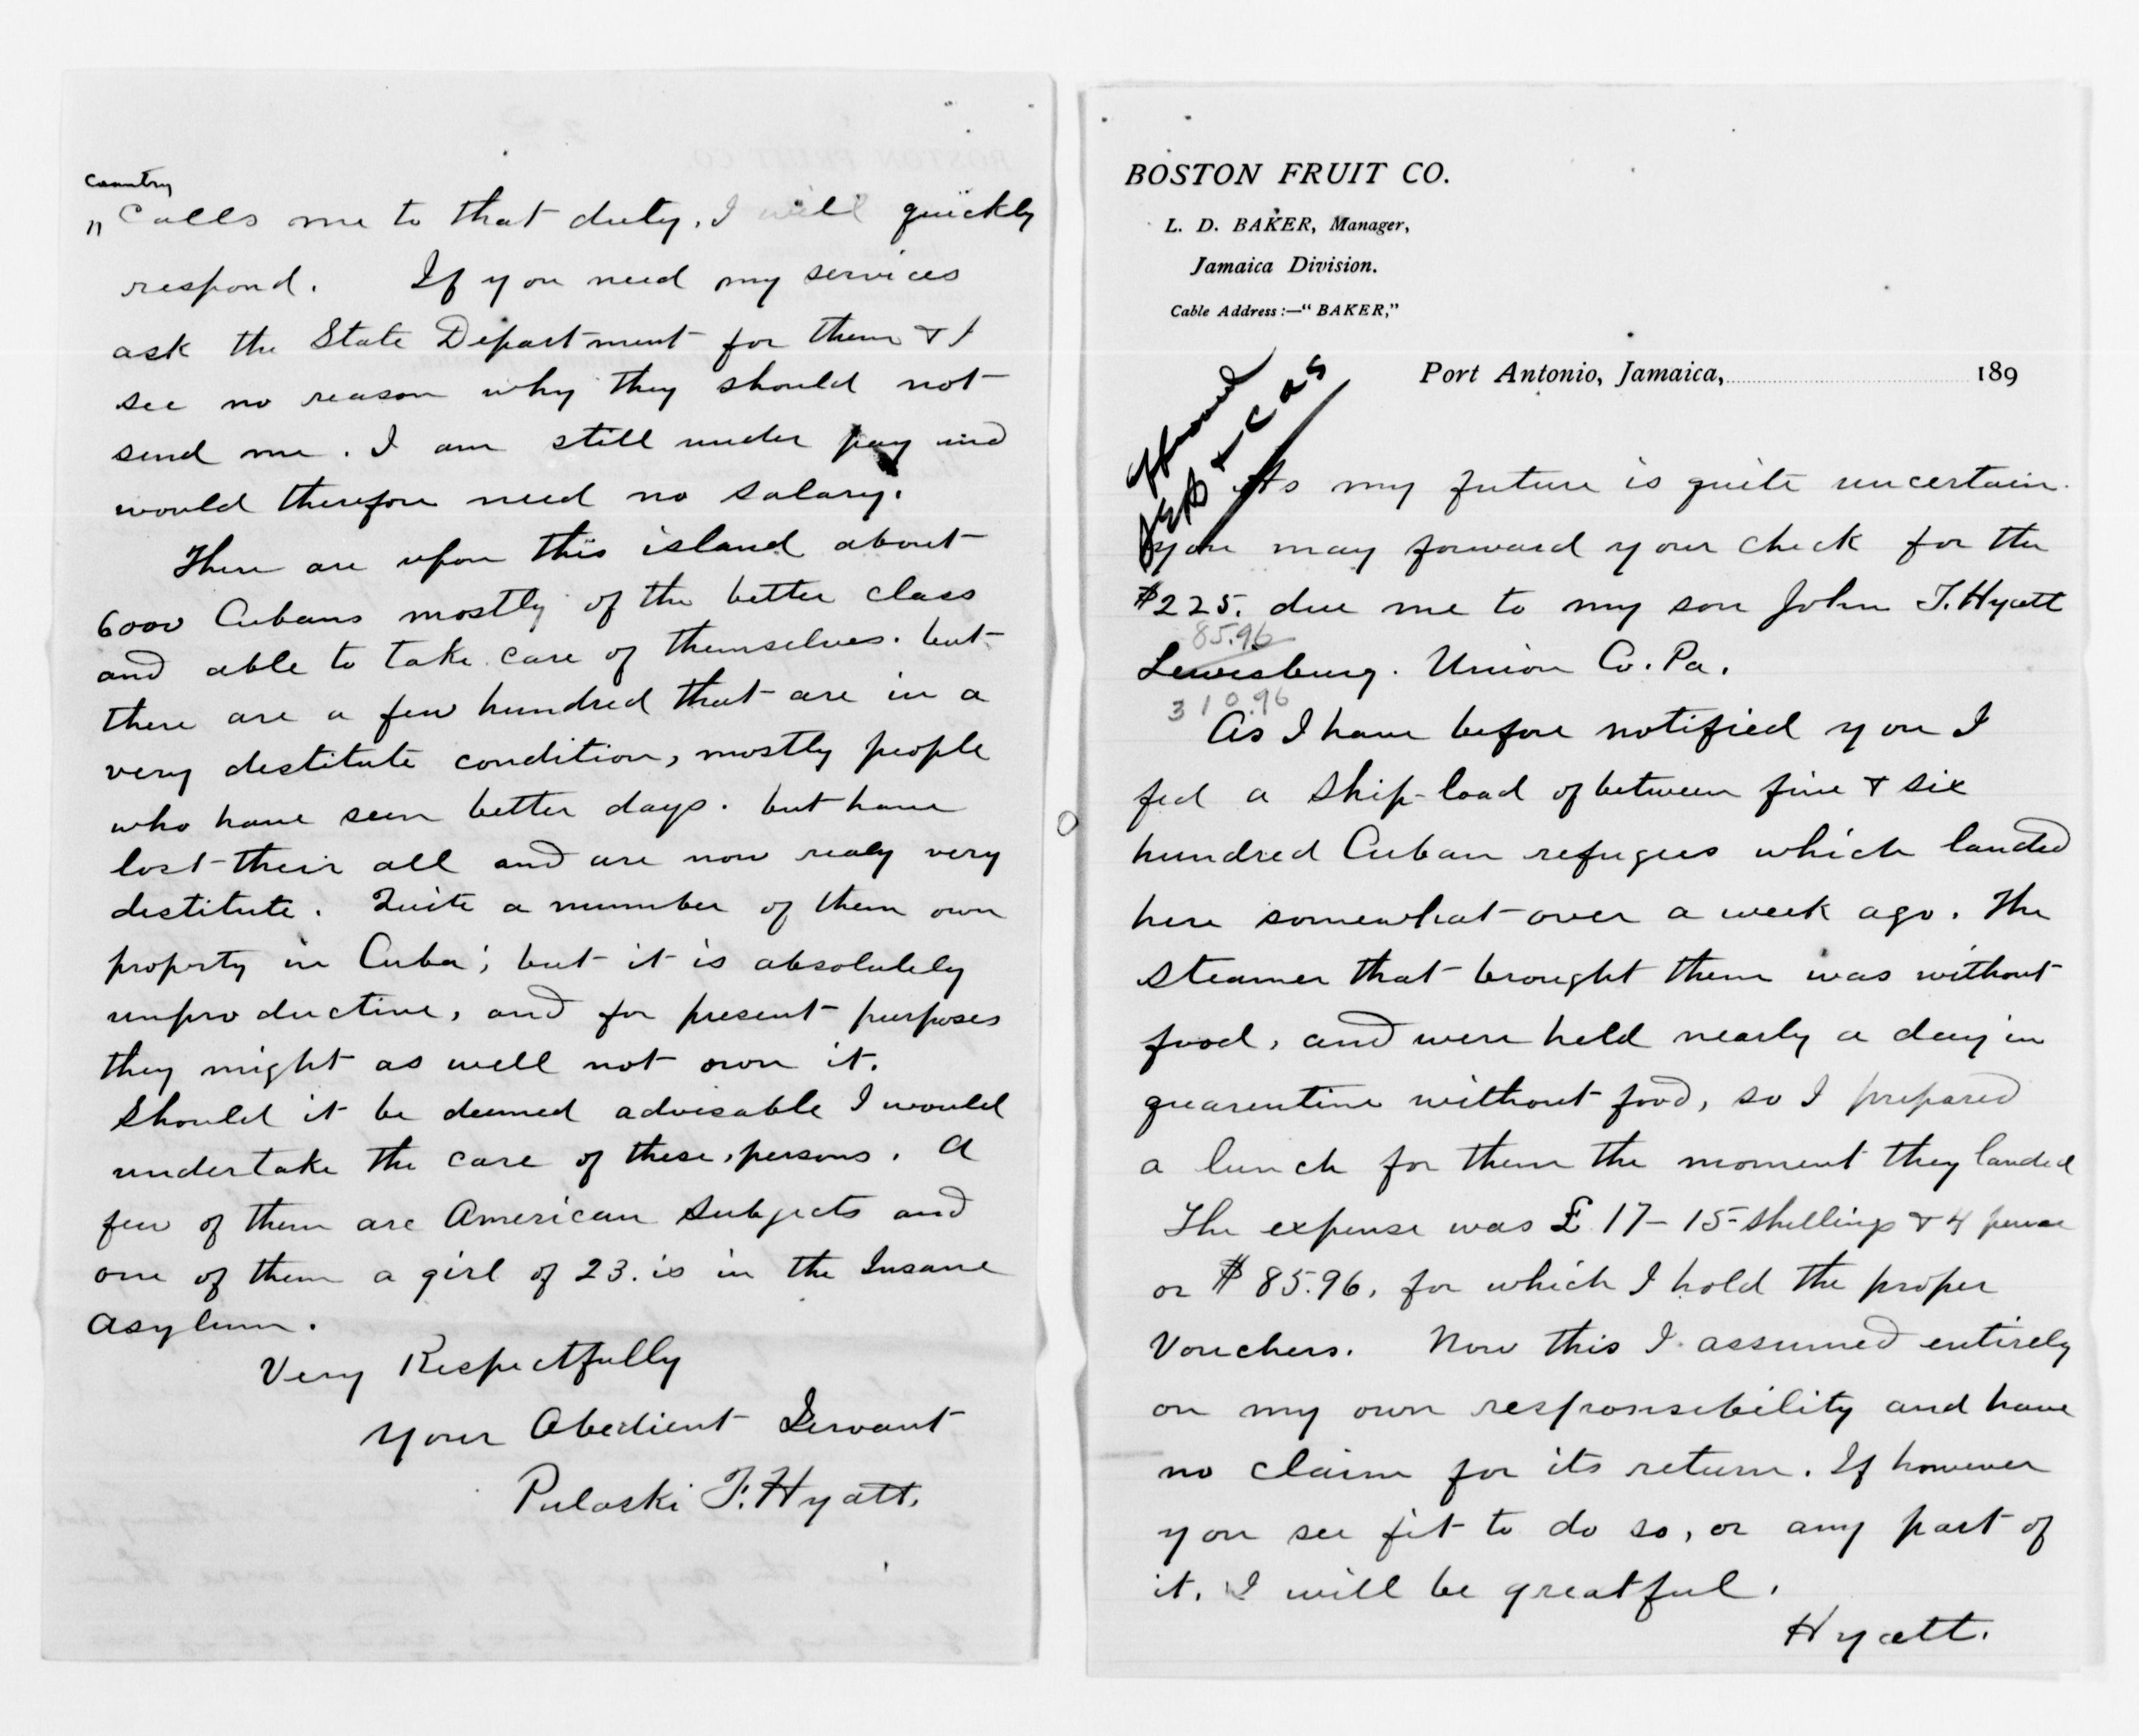 Country
" Calls me to that duty, I will quickly
respond. If you need my services
ask the State Department for them & I
see no reason why they should not
send me. I am still under pay and
would therefore need no salary.
There are upon this island about
6000 Cubans mostly of the better class
and able to take care of themselves. but
there are a few hundred that are in a
very destitute condition, mostly people
who have seen better days. but have
lost their all and are now realy very
destitute. Quite a number of them own
property in Cuba; but it is absolutely
unproductive, and for present purposes
they might as well not own it.
Should it be deemed advisable I would
undertake the care of these persons. A
few of them are American Subjects and
one of them a girl of 23. is in the Insane
Asylum.
Very Respectfully
Your Obedient Servant
Pulaski F. Hyatt.
BOSTON FRUIT CO.
L. D. BAKER, Manager,
Jamaica Division.
Cable Address:—"BAKER,"
Port Antonio, Jamaica, 189
As my future is quite uncertain.
you may forward your check for the
$225. due me to my son John T. Hyatt
85.96
Lewisburg. Union Co. Pa.
310.96
As I have before notified you I
fed a ship-load of between five & six
hundred Cuban refugees which landed
here somewhat over a week ago. The
steamer that brought them was without
food, and were held nearly a day in
quarentine without food, so I prepared
a lunch for them the moment they landed
The expense was £ 17-15-shillings & 4 pence
or $85.96, for which I hold the proper
Vouchers. Now this I assumed entirely
on my own responsibility and have
no claim for its return. If however
you see fit to do so, or any part of
it. I will be greatful.
Hyatt.